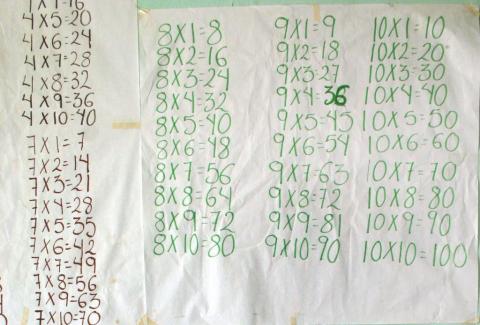 4x5=20
4x6=24
4x7=28
4x8=32
4x9=36
4x10=40
7x1=7
7x2=14
7x3=21
7x4=28
7x5=35
7x6=42
7x7=49
7x8=56
7x9=63
7x10=70
8x1=8
8x2=16
8x3=24
8x4=32
8x5=40
8x6=48
8x7=56
8x8=64
8x9=72
8x10=80
9x1=9
9x2=18
9x3=27
9x4=36
9x5=45
9x6=54
9x7=63
9x8=72
9x9=81
9x10=90
10x1=10
10x2=20
10x3=30
10x4=40
10x5=50
10x6=60
10x7=70
10x8=80
10x9=90
10x10=100